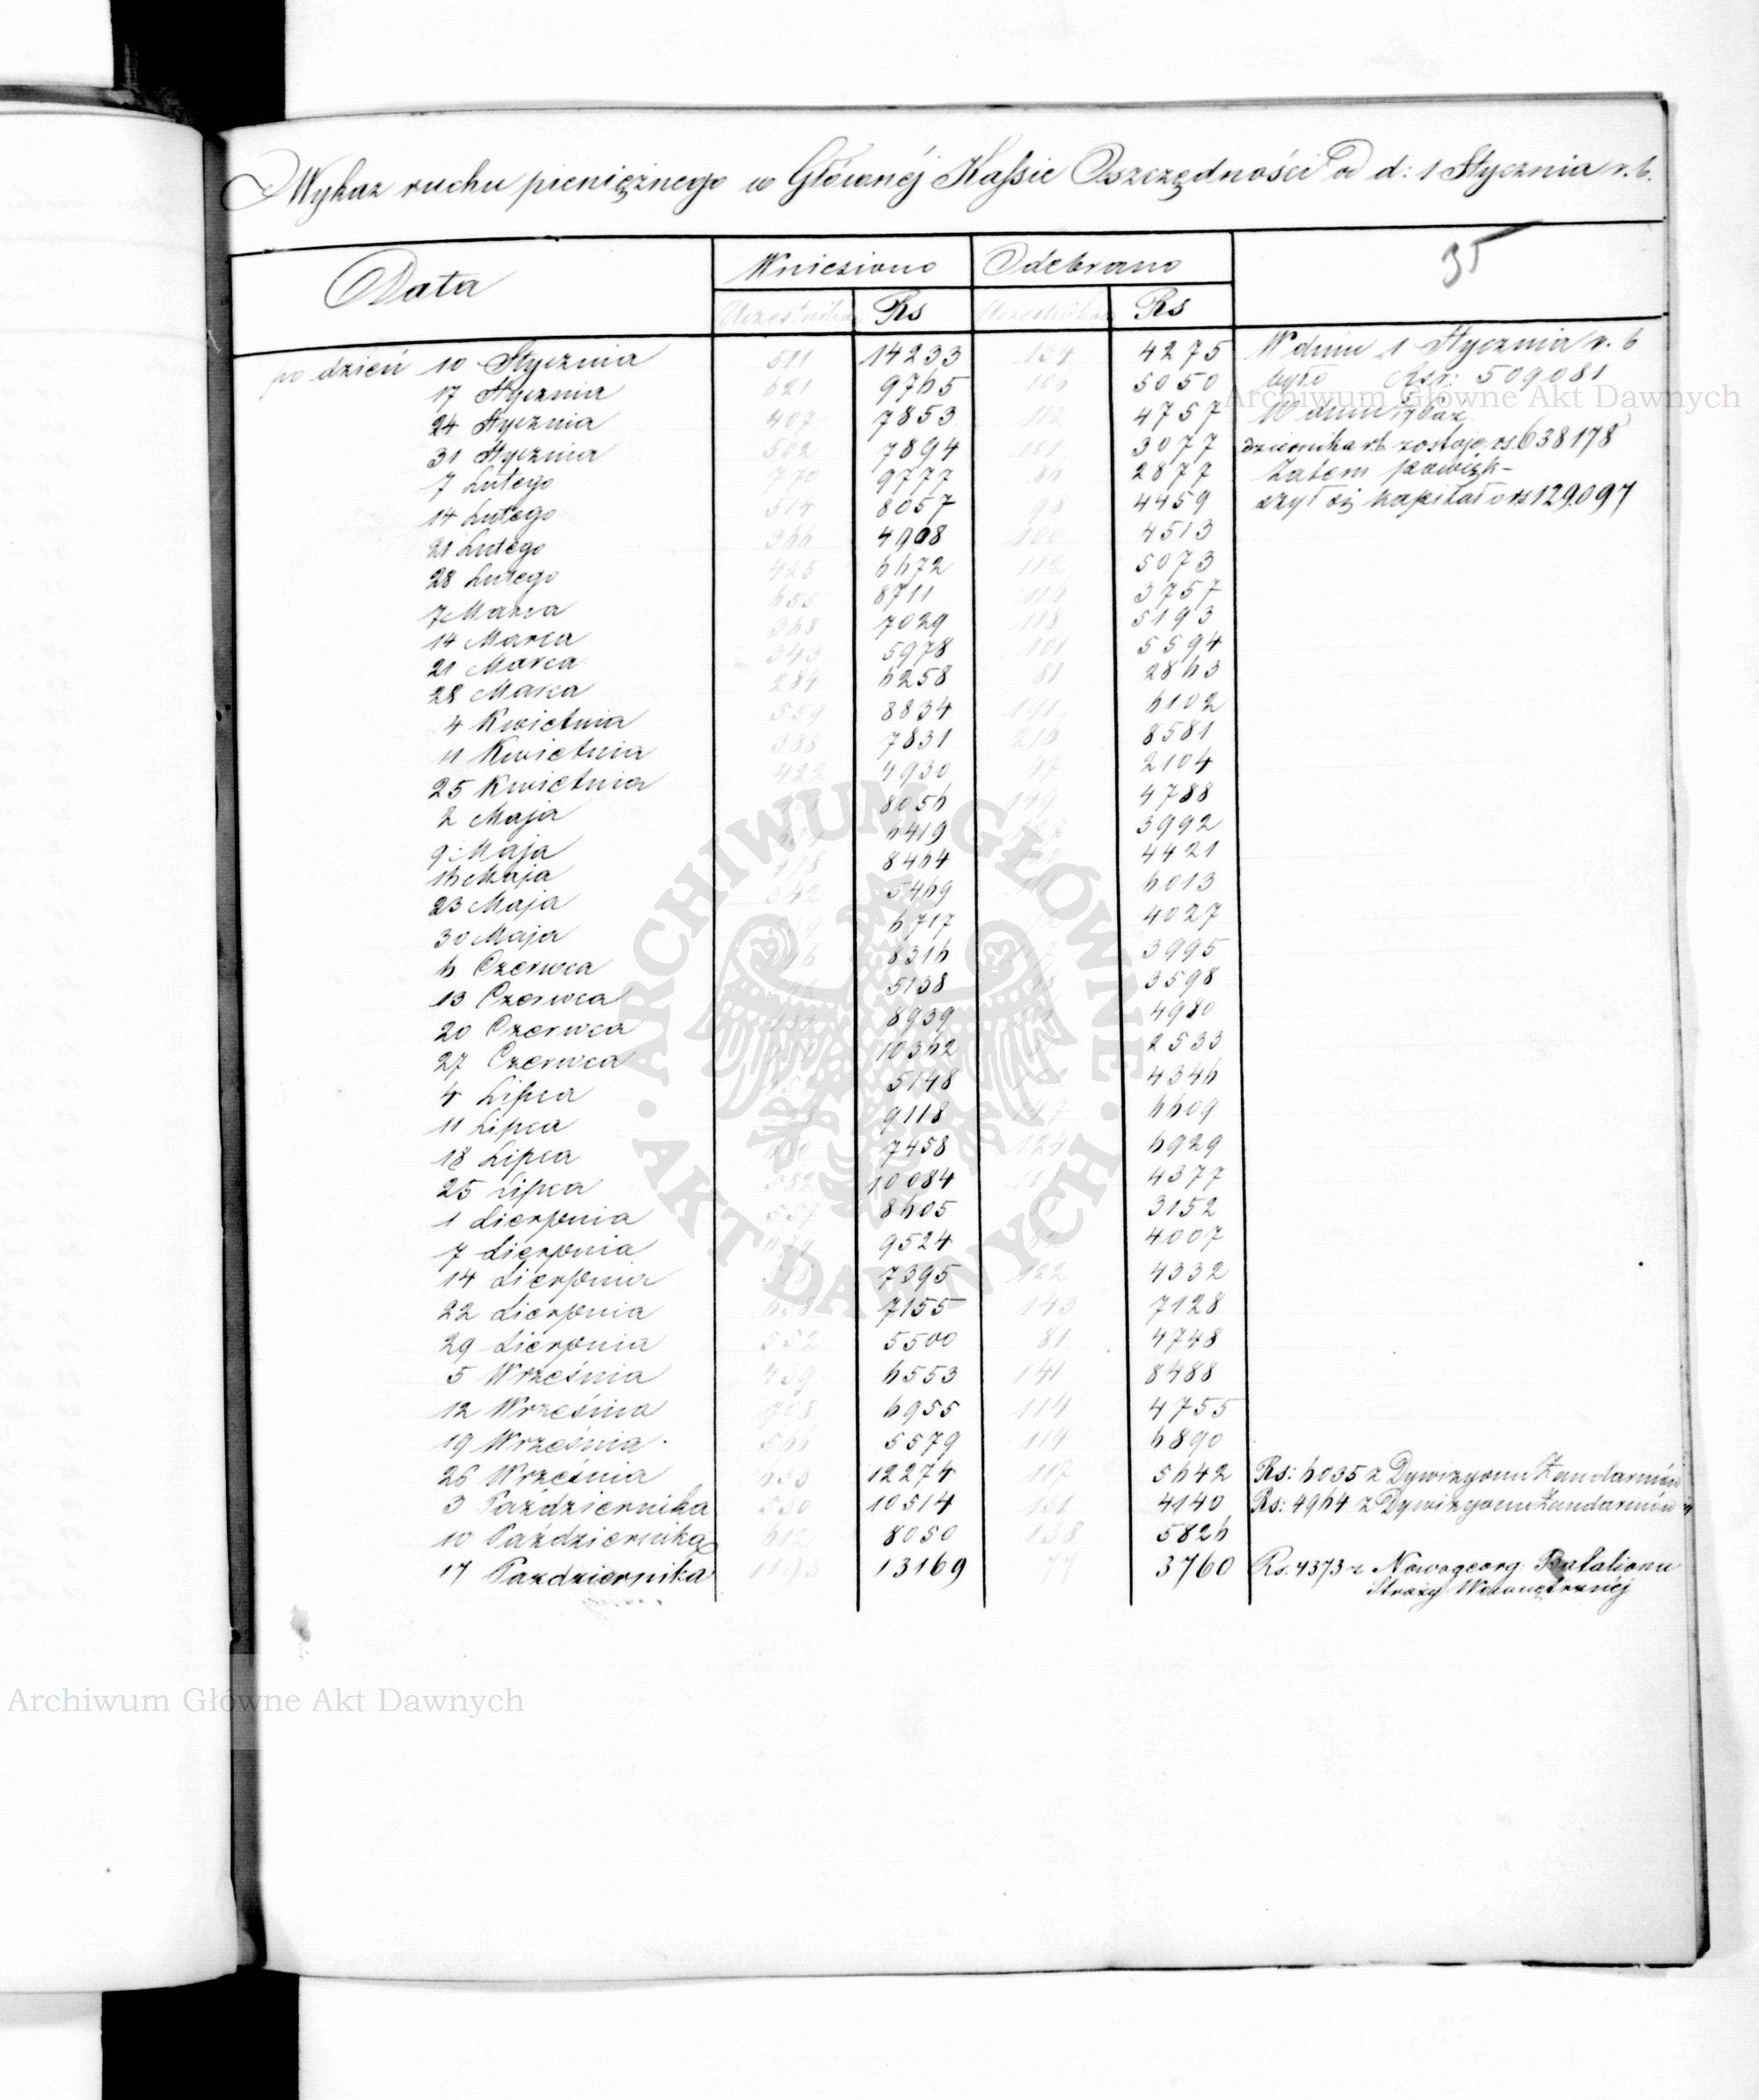 Wykaz ruchu pieniężnego w Głównéj Kassie Oszczędności od d: 1 Stycznia r. b.
35
Data Wniesiono Odebrano
Uczestników Rs Uczestników Rs
po dzień 10 Stycznia 511 14233 134 4275 W dniu 1 Stycznia r. b
17 Stycznia 621 9765 106 5050 było Rsr: 509081
24 Stycznia 407 7853 112 4757 W dniu
31 Stycznia 502 7894 101 3077 dziernika rb. zostaje rs 638178
7 Lutego 770 9777 2877 Zatem powięk-
14 Lutego 514 8057 98 4459 szył się kapitał o rs 129.097
21 Lutego 366 4908 100 4513
28 Lutego 425 6672 112 5073
7 Marca 655 8711 116 3757
14 Marca 368 7029 118 5193
21 Marca 343 5978 101 5594
28 Marca 284 6258 81 2863
4 Kwietnia 559 8834 191 6102
11 Kwietnia 388 7831 216 8581
25 Kwietnia 482 4930 47 2104
2 Maja 8056 149 4788
9 Maja 6419 3992
16 Maja 478 8464 4421
23 Maja 342 5469 6013
30 Maja 6717 4027
6 Czerwca 8316 3995
13 Czerwca 5138 3598
20 Czerwca 8939 4980
27 Czerwca 10362 2533
4 Lipca 5148 4346
11 Lipca 9118 6609
18 Lipca 7458 124 6929
25 Lipca 10084 4377
1 Sierpnia 557 8605 3152
7 Sierpnia 9524 4007
14 Sierpnia 7395 122 4332
22 Sierpnia 7155 143 7128
29 Sierpnia 552 5500 81 4748
5 Września 439 6553 141 8488
12 Września 708 6955 114 4755
19 Września 566 5579 114 6890
26 Września 633 12274 117 5642 Rs: 6035 z Dywizyonu Żandarmów
3 Października 530 10514 4140 Rs: 4964 z Dywizyonu Żandarmów
10 Października 612 8050 138 5826
17 Października 1193 13169 77 3760 Rs. 4373 z Nowogeorg: Batalionu
Straży Wewnętrznéj
Archiwum Główne Akt Dawnych
ARCHIWUM GŁÓWNE · AKT DAWNYCH ·
Archiwum Główne Akt Dawnych